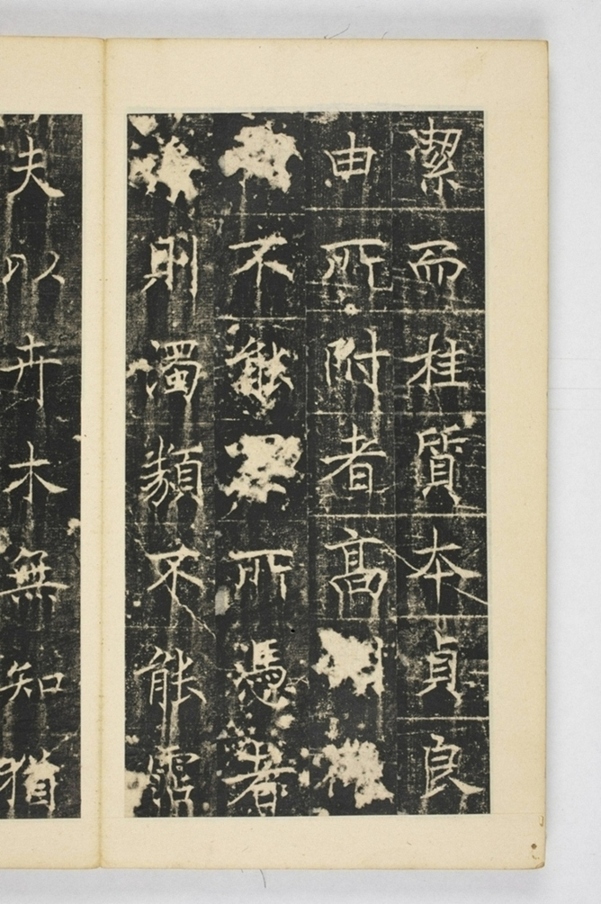 潔而桂質本貞良
由所附者高
不能所憑者
則濁類不能霑
夫以卉木無知猶